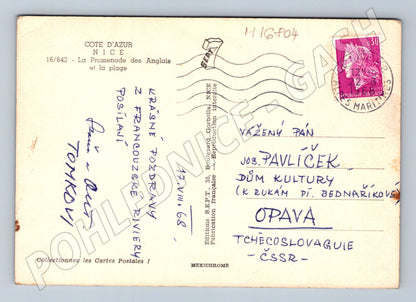 COTE D'AZUR
NICE
16/642 - La Promenade des Anglais
et la plage
M16804
KRÁSNÉ POZDRAVY
Z FRANCOUZSKÉ RIVIERY
POSÍLAJÍ
TOMKOVI
17.VIII.68.
Editions S.E.P.T. 35, Boulevard Gorbella, NICE
Fabrication française - Reproduction interdite
MEXICHROME
Collectionnez les Cartes Postales !
0,30
ES MARITIMES
VÁŽENÝ PÁN
JOS. PAVLÍČEK
DŮM KULTURY
(K RUKÁM PÍ. BEDNAŘÍKOVÉ)
OPAVA
TCHÉCOSLOVAQUIE
- ČSSR -
POHLEDNICE - GACH